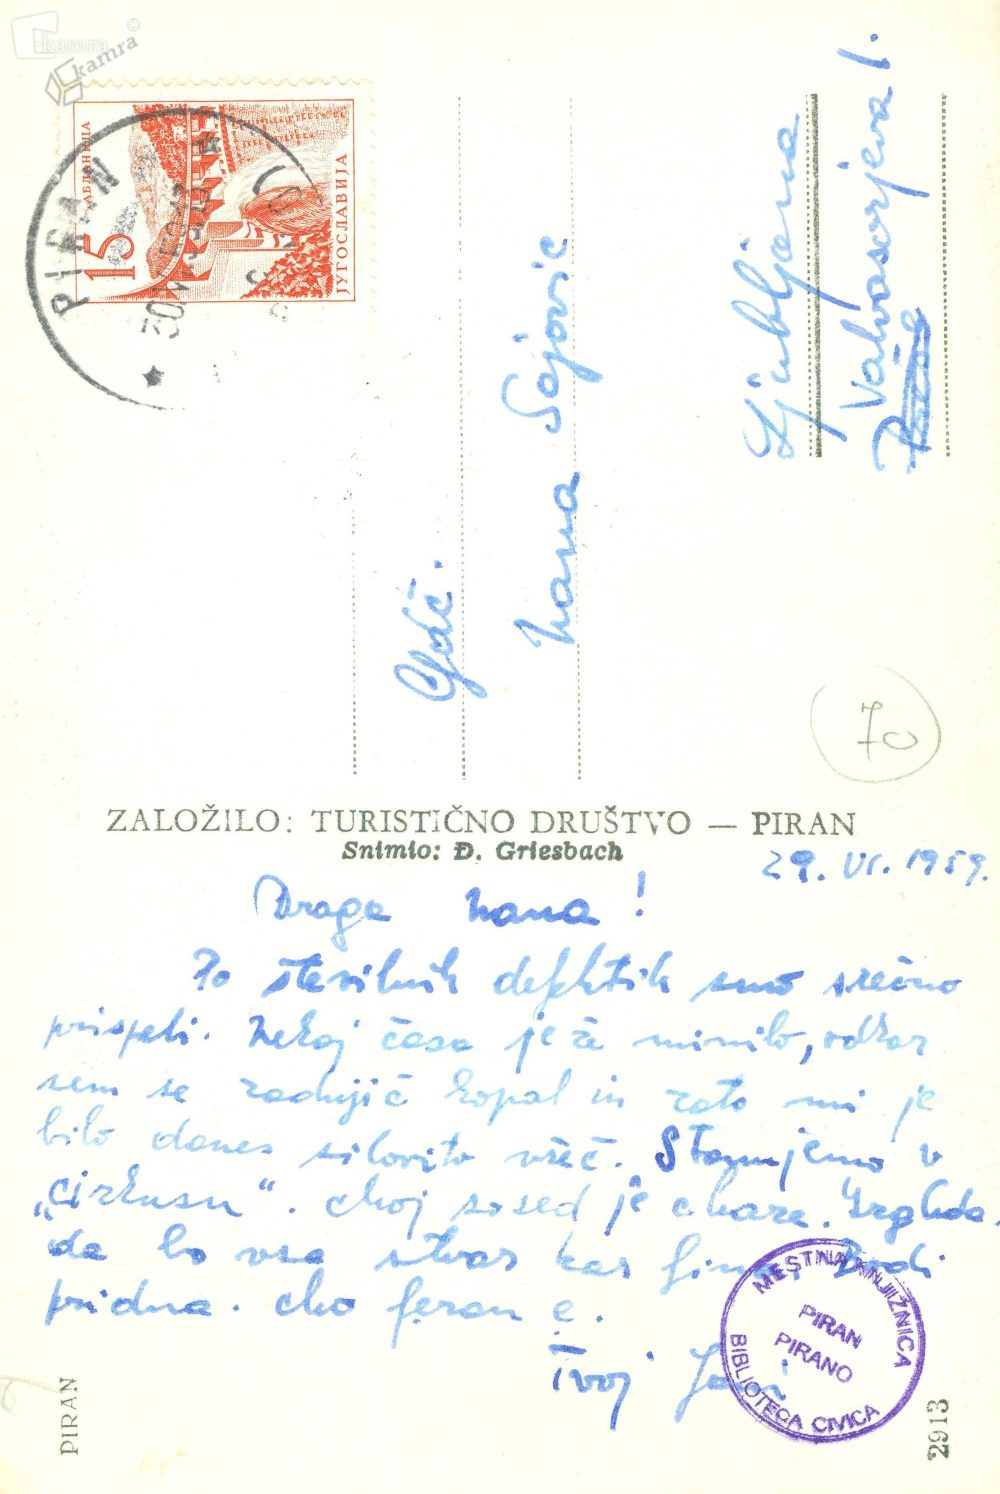 kamra
kamra©
ЈАБЛАНИЦА
15
ЈУГОСЛАВИЈА
PIRAN
Gdč.
Nana Sajovic
Ljubljana
Valvasorjeva 1.
70
ZALOŽILO: TURISTIČNO DRUŠTVO — PIRAN
Snimio: Đ. Griesbach
29. VI. 1959.
Draga Nana!
Po številnih defektih smo srečno
prispeli. Nekaj časa je že minilo, odkar
sem se zadnjič kopal in zato mi je
bilo danes silovito všeč. Stanujemo v
„cirkusu“. Moj sosed je Izgleda,
da bo vsa stvar kar Bodi
pridna.
Tvoj
MESTNA KNJIŽNICA
PIRAN
PIRANO
BIBLIOTECA CIVICA
PIRAN
2913